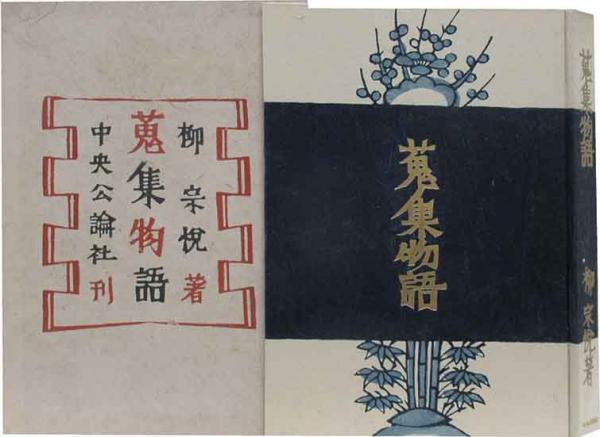 柳宗悦著
蒐集物語
中央公論社刊
蒐集物語
蒐集物語
柳宗悦著